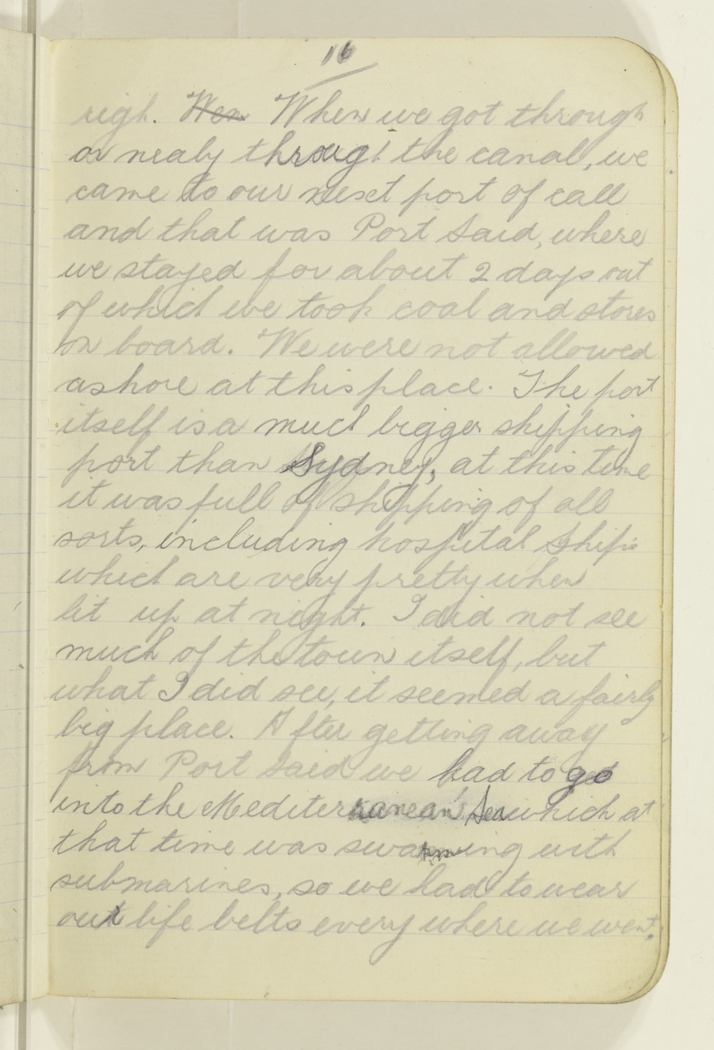 16
righ. Wen When we got through
or nealy through the canal, we
came to our next port of call
and that was Port Said, where
we stayed for about 2 days out
of which we took coal and stores
on board. We were not allowed
ashore at this place. The port
itself is a much bigger shipping
port than Sydney, at this time
it was full of shipping of all
sorts, including hospital ships
which are very pretty when
lit up at night. I did not see
much of the town itself, but
what I did see, it seemed a fairly
big place. After getting away
from Port Said we had to go
into the Mediterranean Sea which at
that time was swarming with
submarines, so we had to wear
our life belts every where we went.